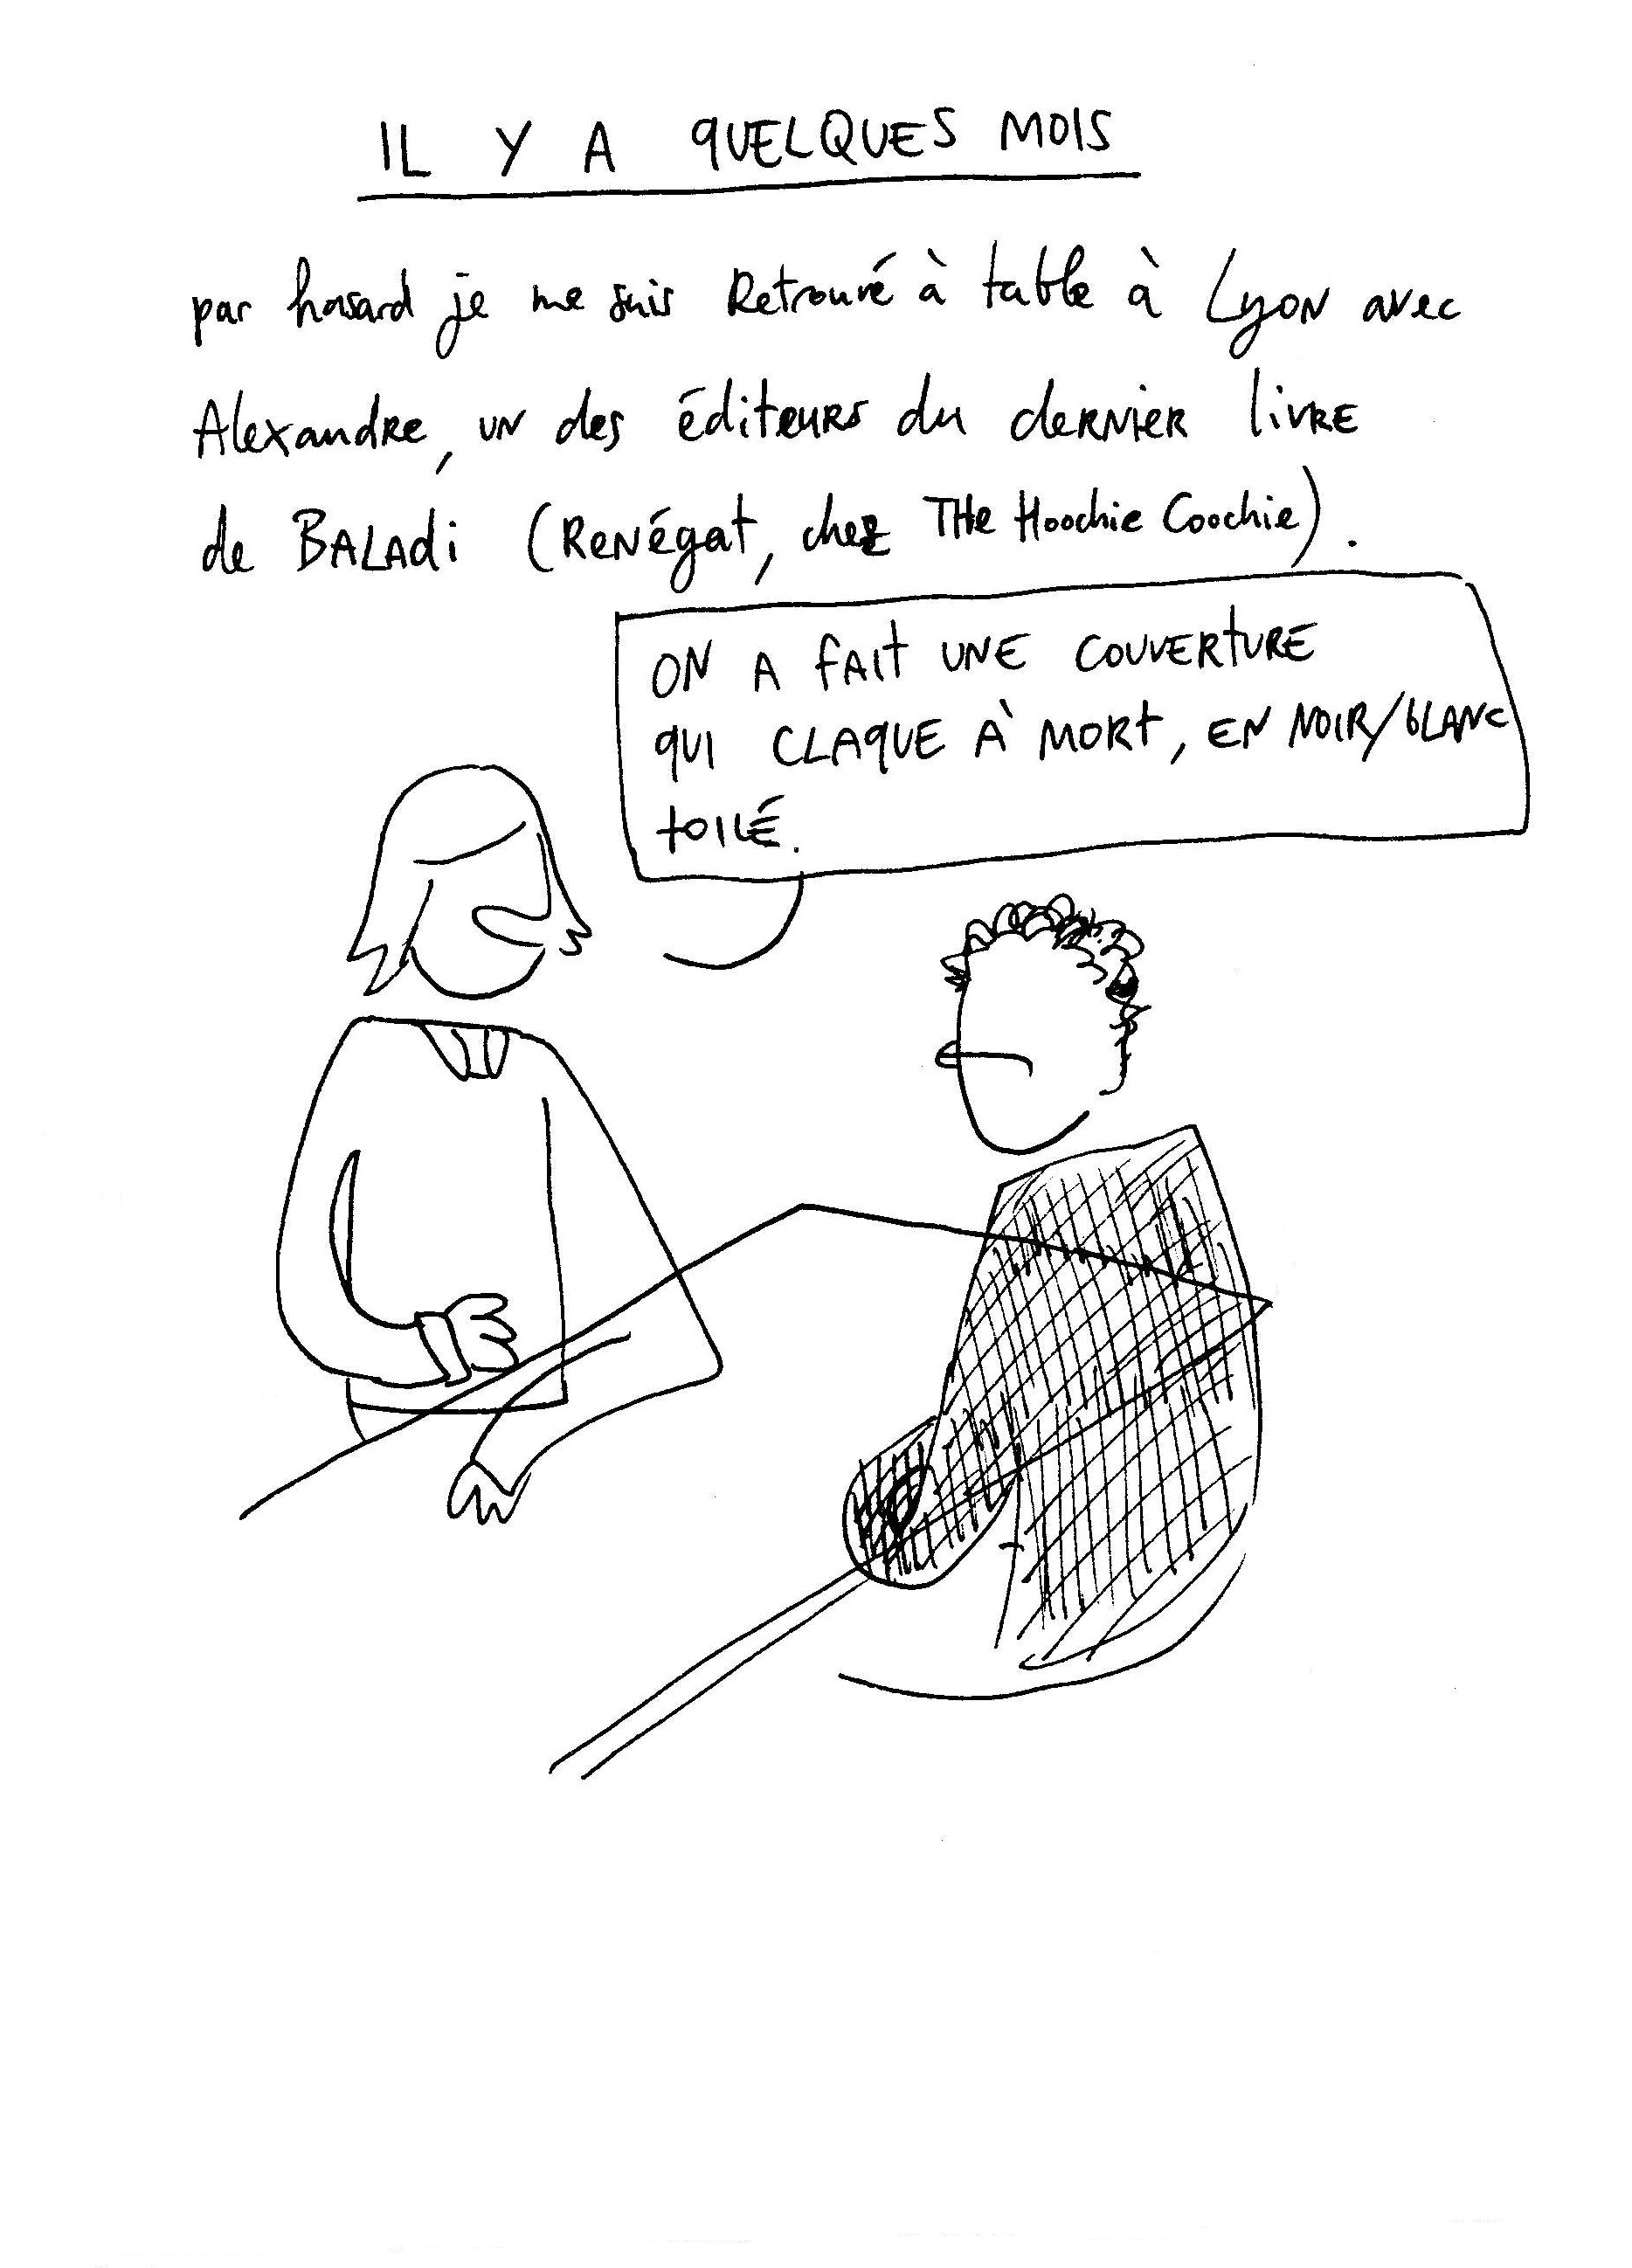 IL Y A QUELQUES MOIS
par hasard je me suis Retrouvé à table à Lyon avec
Alexandre, un des éditeurs du dernier livre
de BALADI (Renégat, chez THe Hoochie Coochie).
ON A FAIT UNE COUVERTURE
QUI CLAQUE À MORT, EN NOIR/BLANC
TOILÉ.